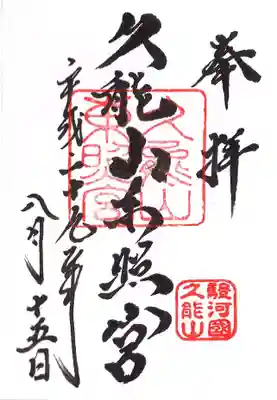 奉拝
久能山東照宮
久能山
東照宮
駿河國
久能山
平成二十九年
八月十五日